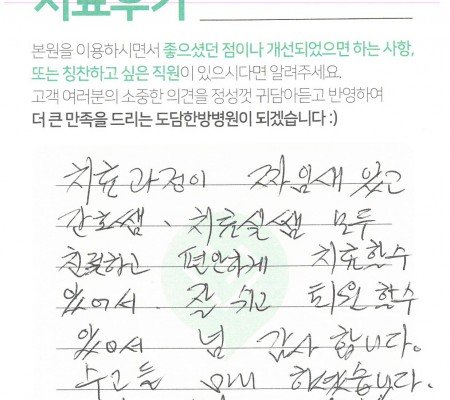 치료후기
본원을 이용하시면서 좋으셨던 점이나 개선되었으면 하는 사항,
또는 칭찬하고 싶은 직원이 있으시다면 알려주세요.
고객 여러분의 소중한 의견을 정성껏 귀담아듣고 반영하여
더 큰 만족을 드리는 도담한방병원이 되겠습니다 :)
치료과정이 짜임새 있고
간호쌤、치료실쌤 모두
친절하고 편안하게 치료할수
있어서 잘 쉬고 퇴원할수
있어서 넘 감사합니다.
수고들 많이 하셨습니다.